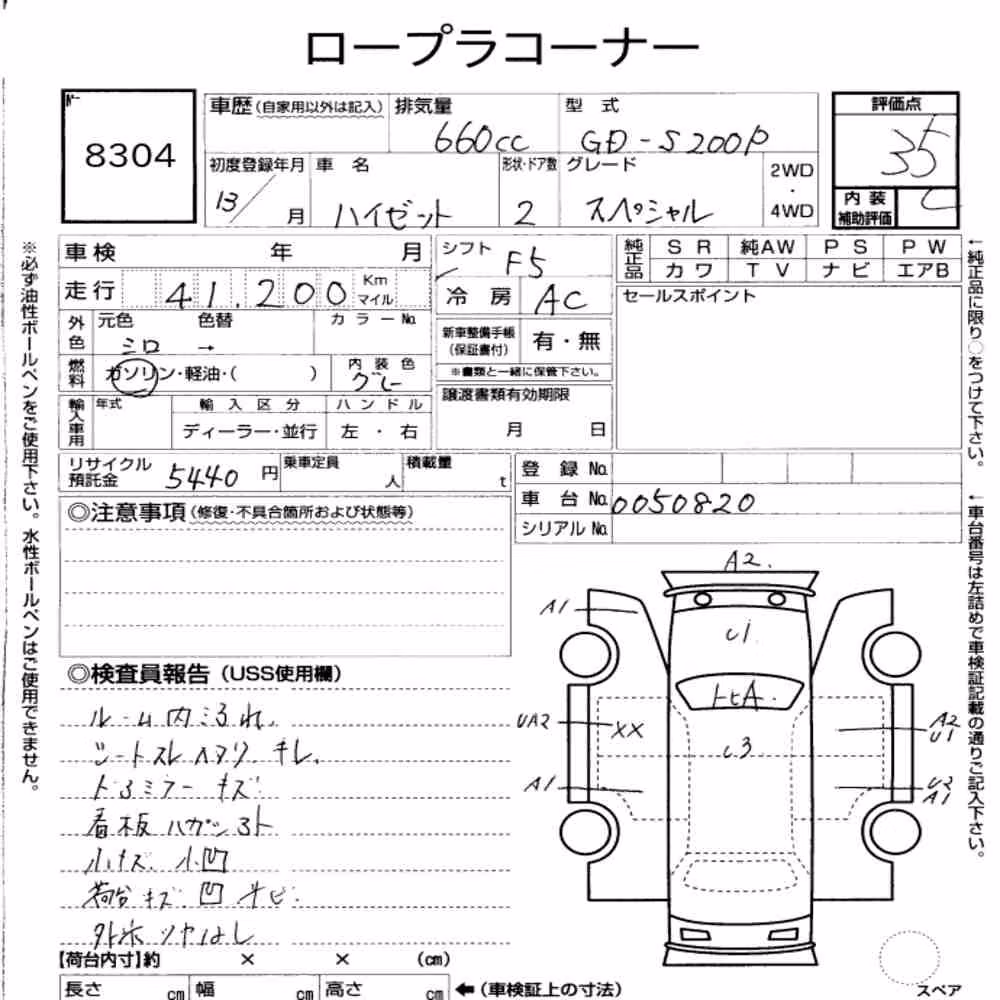 ロープラコーナー
No.
8304
車歴(自家用以外は記入)
排気量
660cc
型 式
GD-S200P
評価点
35
初度登録年月
13/ 月
車 名
ハイゼット
形状・ドア数
2
グレード
スペシャル
2WD
・
4WD
内 装
補助評価
C
車検 年 月
シフト
F5
純正品
SR 純AW PS PW
カワ TV ナビ エアB
走行 41.200 Km
マイル
冷 房
AC
セールスポイント
外色
元色 色替
シロ →
カラーNo.
新車整備手帳
(保証書付)
有・無
※書類と一緒に保管下さい。
燃料
ガソリン・軽油・( )
内装色
グレー
譲渡書類有効期限
月 日
輸入車用
年式
輸入区分
ディーラー・並行
ハンドル
左・右
リサイクル
預託金
5440 円
乗車定員
人
積載量
t
登 録 No.
車 台 No. 0050820
シリアル No.
◎注意事項(修復・不具合箇所および状態等)
◎検査員報告(USS使用欄)
ルーム内 よごれ
シートスレ ヘタリ. キレ.
ドラミラー キズ
看板 ハガシヨト
小キズ. 小凹
荷台 キズ. 凹 サビ.
外板 ツヤなし
【荷台内寸】約 × × (cm)
長さ cm 幅 cm 高さ cm
←(車検証上の寸法)
A2.
A1
U1.
トビA
UA2
XX
U3
A2
U1
A1
U2
A1
スペア
※必ず油性ボールペンをご使用下さい。水性ボールペンはご使用できません。
←純正品に限り○をつけて下さい。
←車台番号は左詰めで車検証記載の通りご記入下さい。